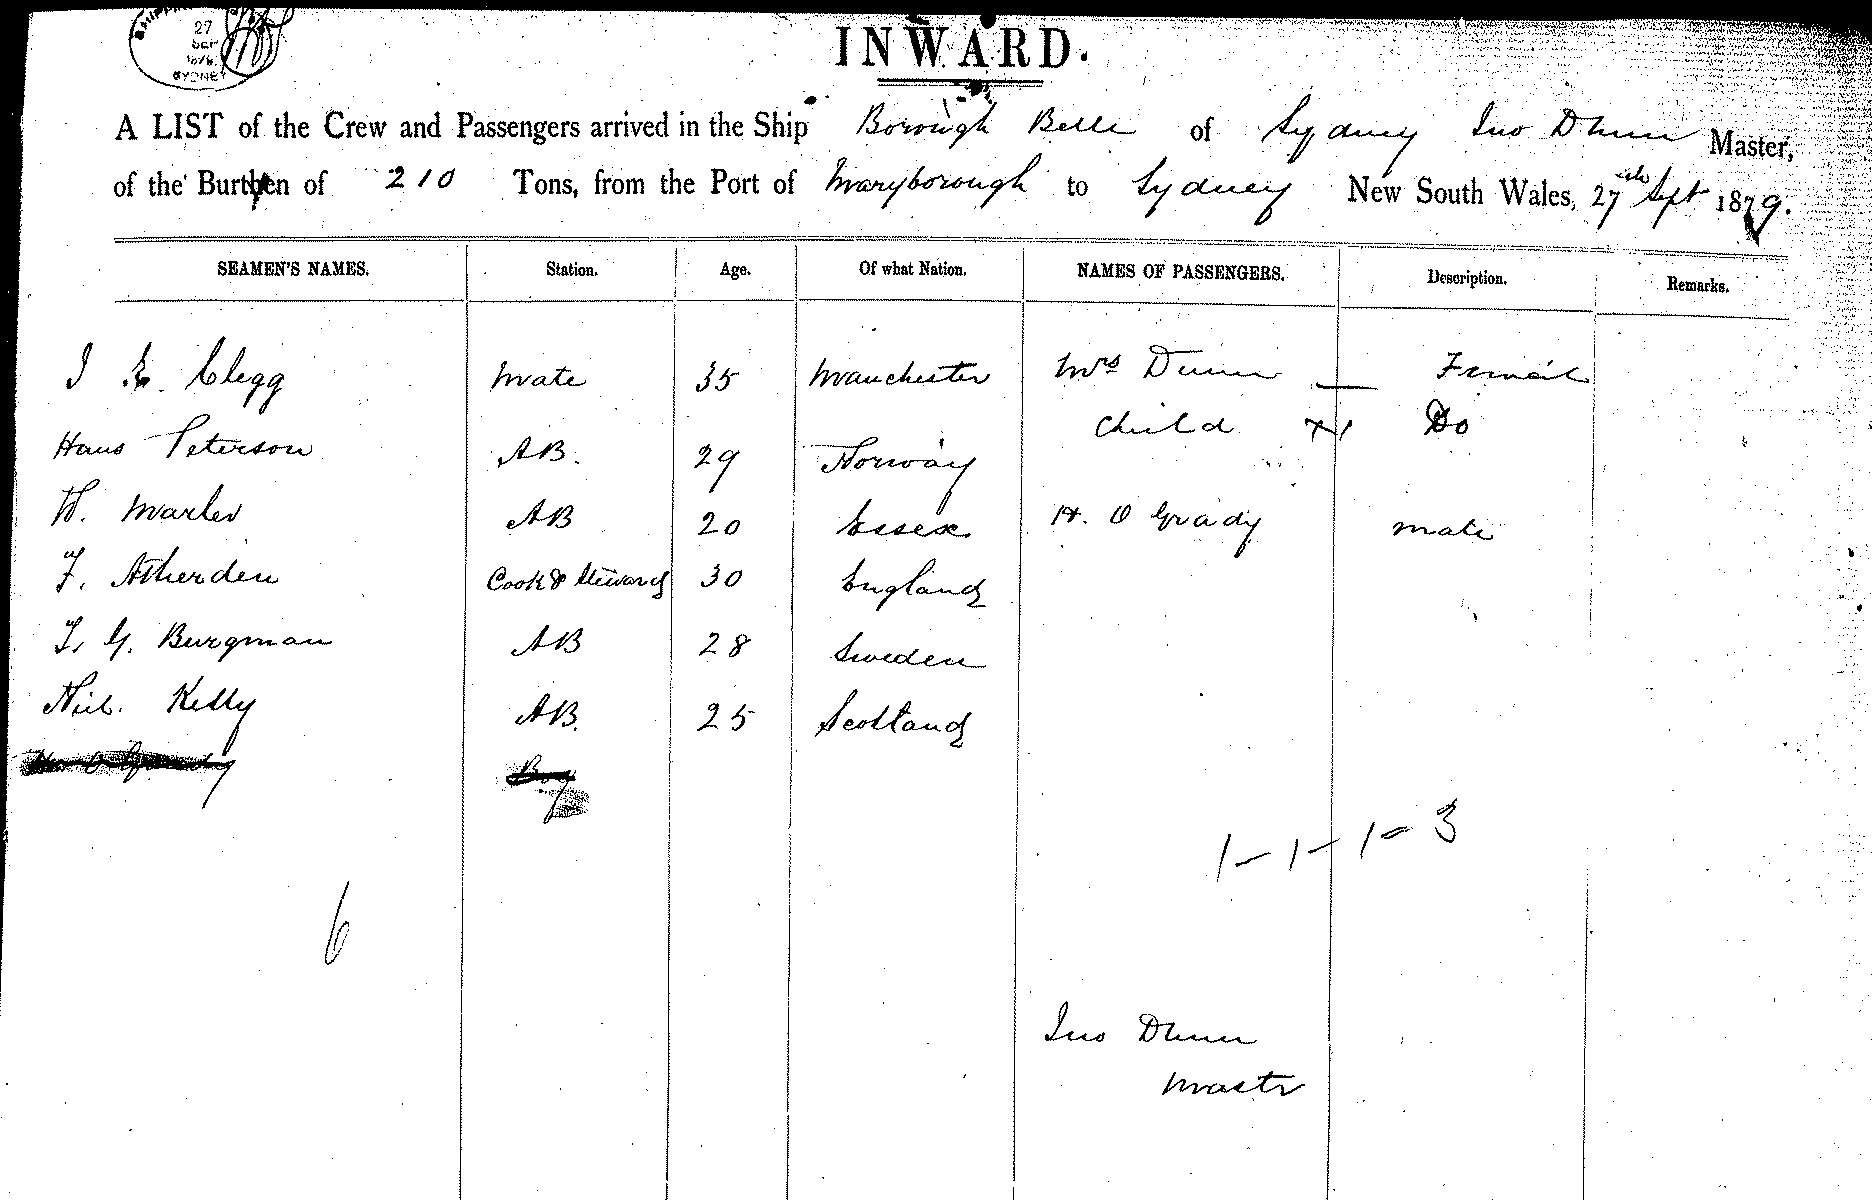 27
SEP
SYDNEY
INWARD.
A LIST of the Crew and Passengers arrived in the Ship Borough Belle of Sydney Jno Dunn Master,
of the Burthen of 210 Tons, from the Port of Maryborough to Sydney New South Wales, 27th Sept 1879.
SEAMEN'S NAMES. Station. Age. Of what Nation. NAMES OF PASSENGERS. Description. Remarks.
J E. Clegg Mate 35 Manchester Mrs Dunn — Female
Child +1 Do
Hans Peterson AB. 29 Norway
W. Marler AB 20 Essex H. O Grady male
F. Atherden Cook & Steward 30 England
F. G. Burgman AB 28 Sweden
Neil. Kelly AB. 25 Scotland
O Grady Boy
1-1-1-3
6
Jno Dunn
Master